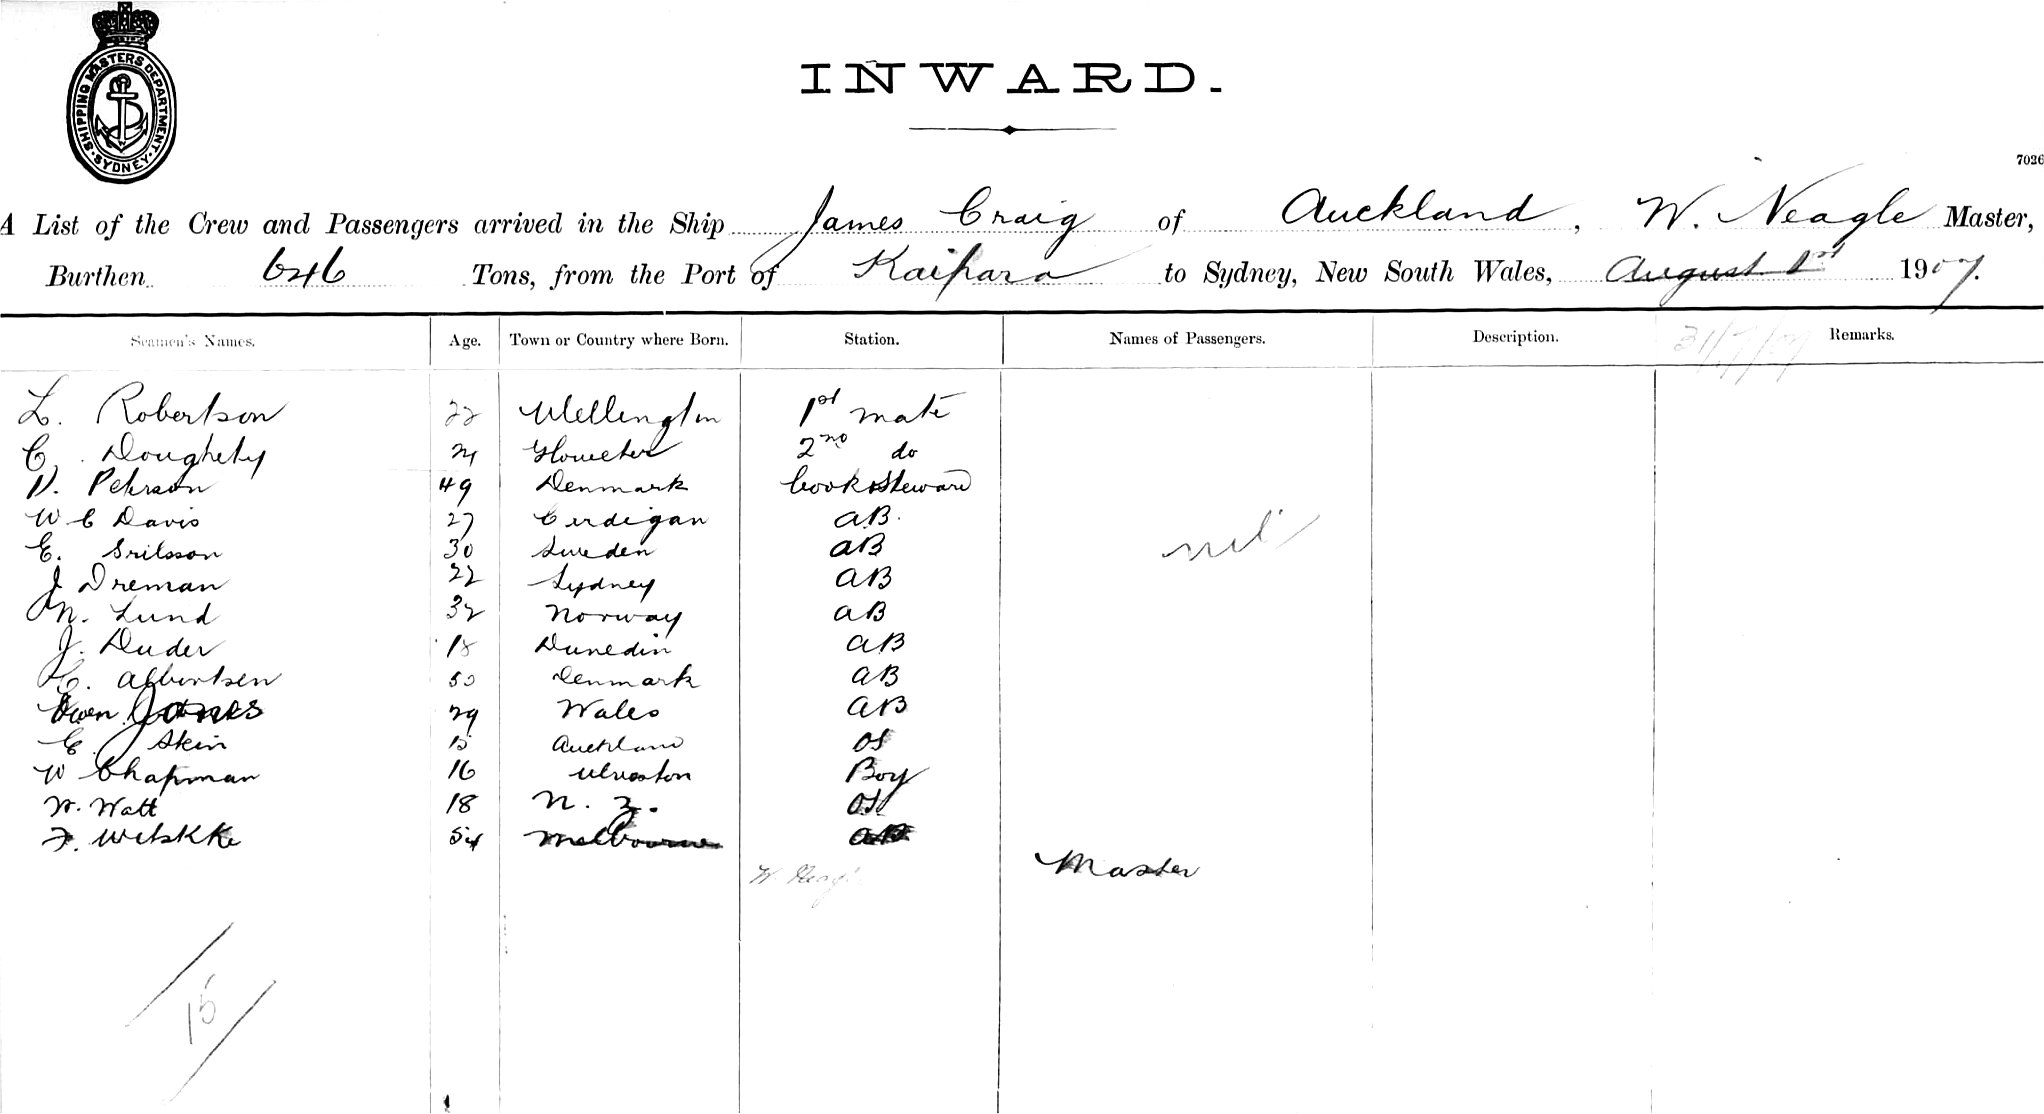 SHIPPING MASTERS DEPARTMENT. SYDNEY.
INWARD.
7026
A List of the Crew and Passengers arrived in the Ship James Craig of Auckland, W. Neagle Master,
Burthen 646 Tons, from the Port of Kaipara to Sydney, New South Wales, August 1st 1907.
Seamen's Names. Age. Town or Country where Born. Station. Names of Passengers. Description. Remarks.
31/7/07
L. Robertson 22 Wellington 1st mate
C. Doughety 21 Gloucester 2nd do
N. Peterson 49 Denmark Cook & Steward
W C Davis 27 Cardigan AB.
E. 30 Sweden AB nil
J Dreman 22 Sydney AB
M. Lund 32 Norway AB
J. Duder 18 Dunedin AB
C. Albertsen 50 Denmark AB
Owen Jones 29 Wales AB
E. Skin 15 Auckland OS
W Chapman 16 Ulverston Boy
W. Watt 18 N. Z. OS
F. Witskke 54 Melbourne AB
W. Neagle Master
15